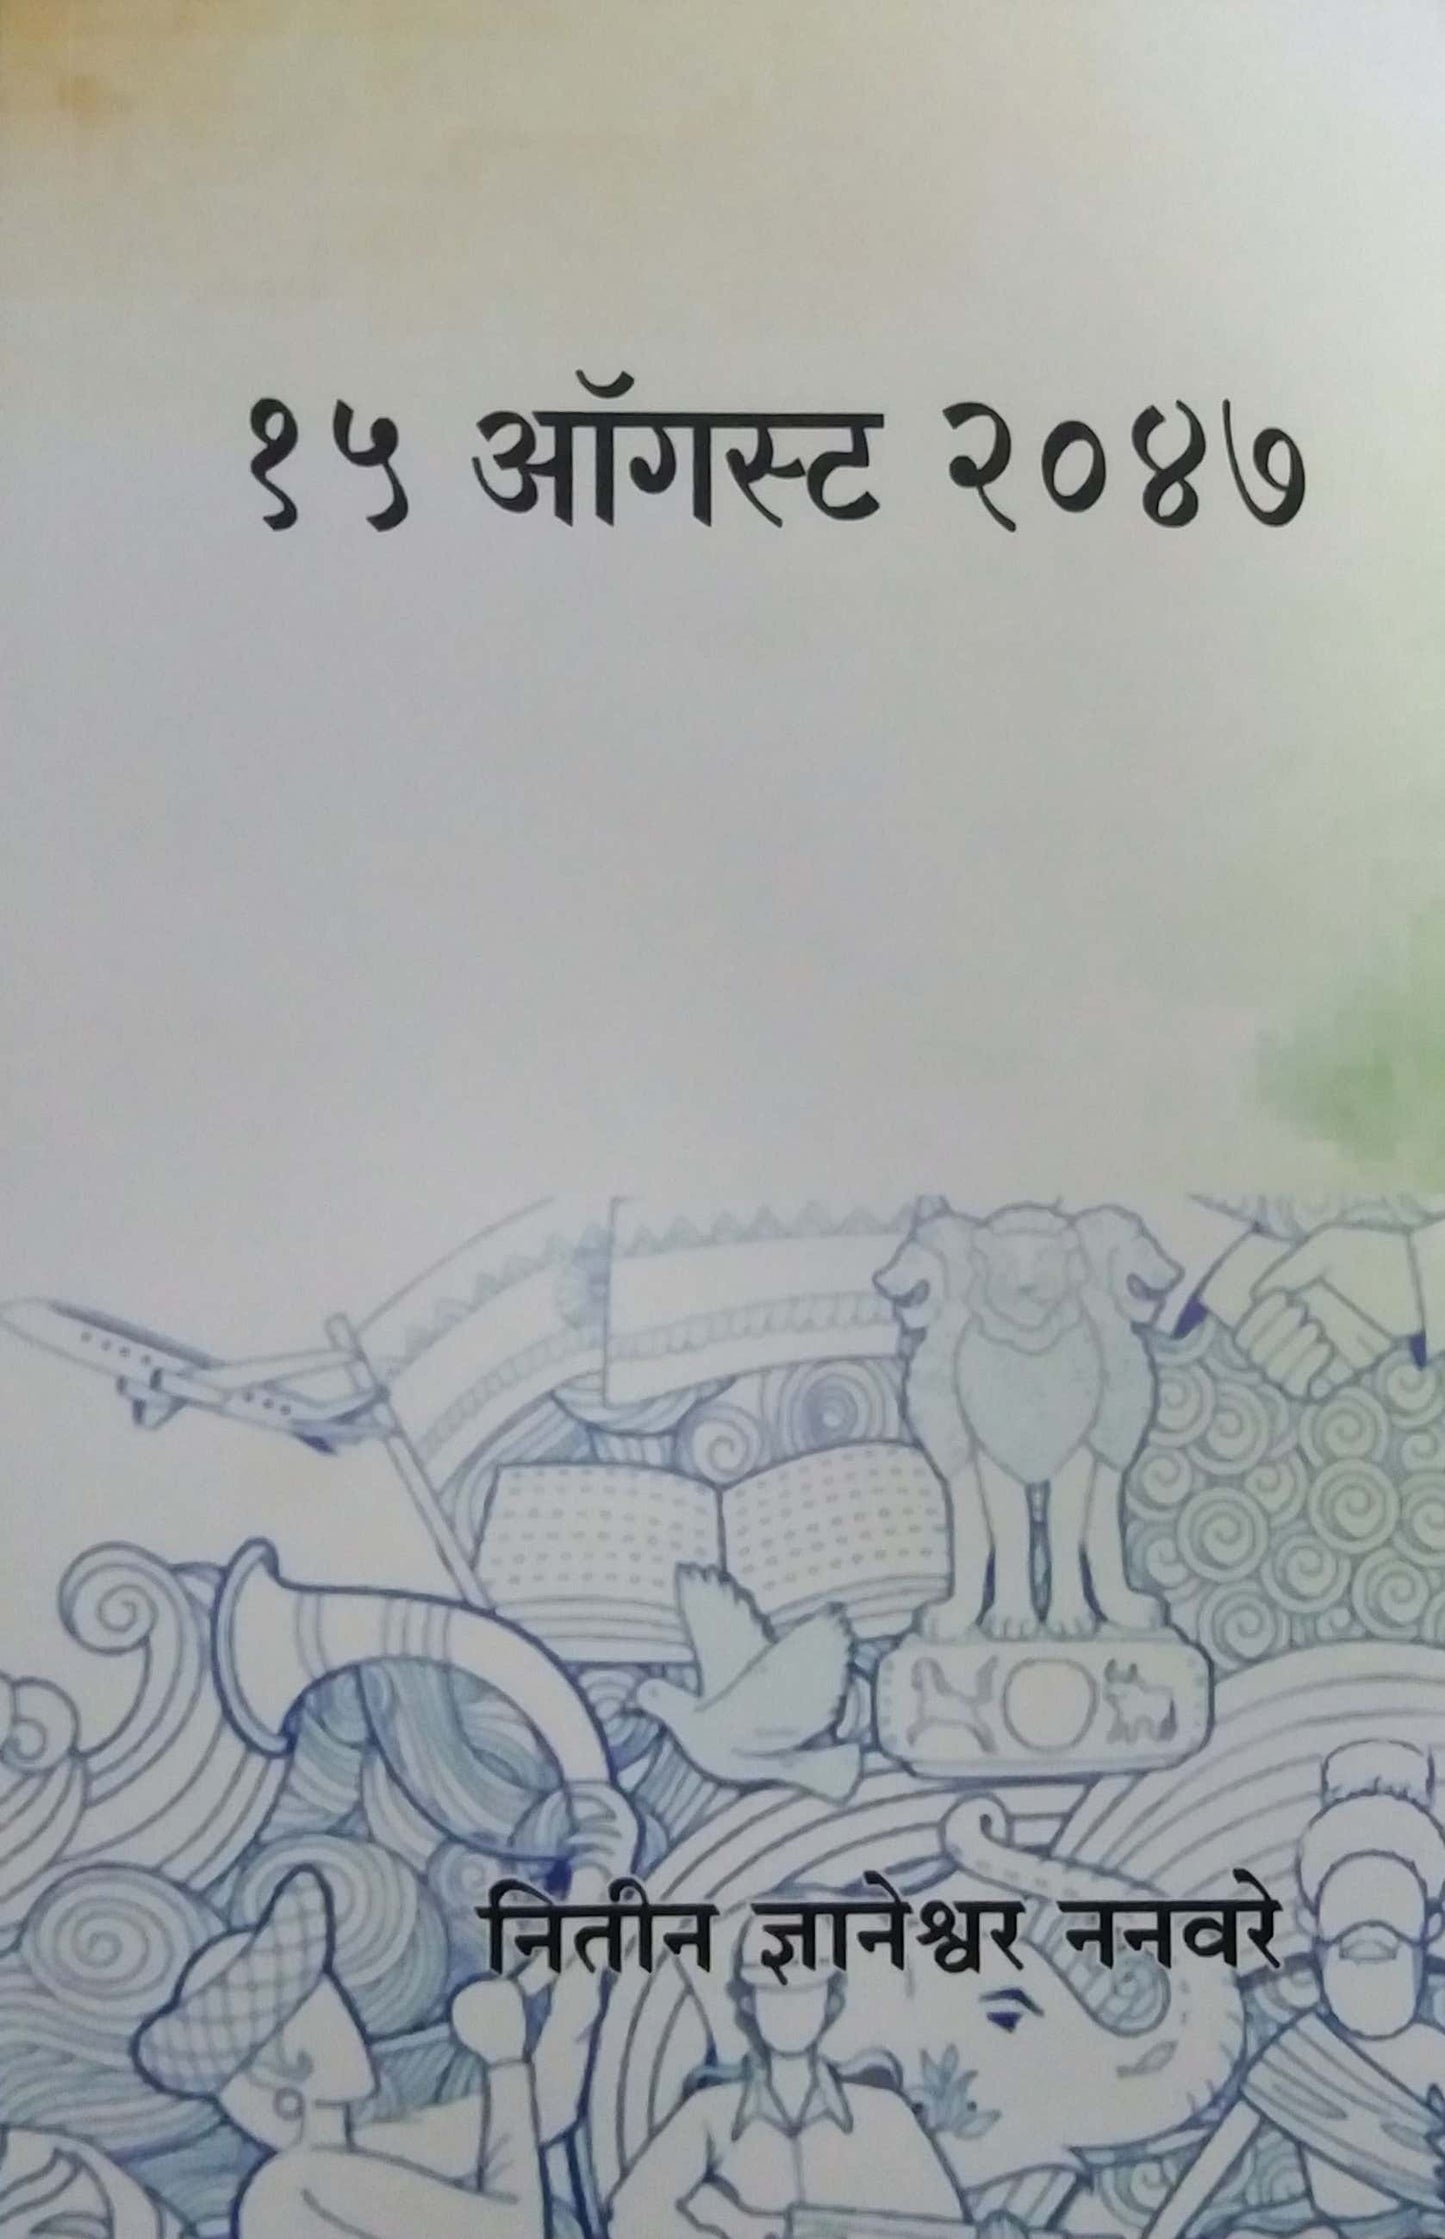 १५ ऑगस्ट २०४७
नितीन ज्ञानेश्वर ननवरे